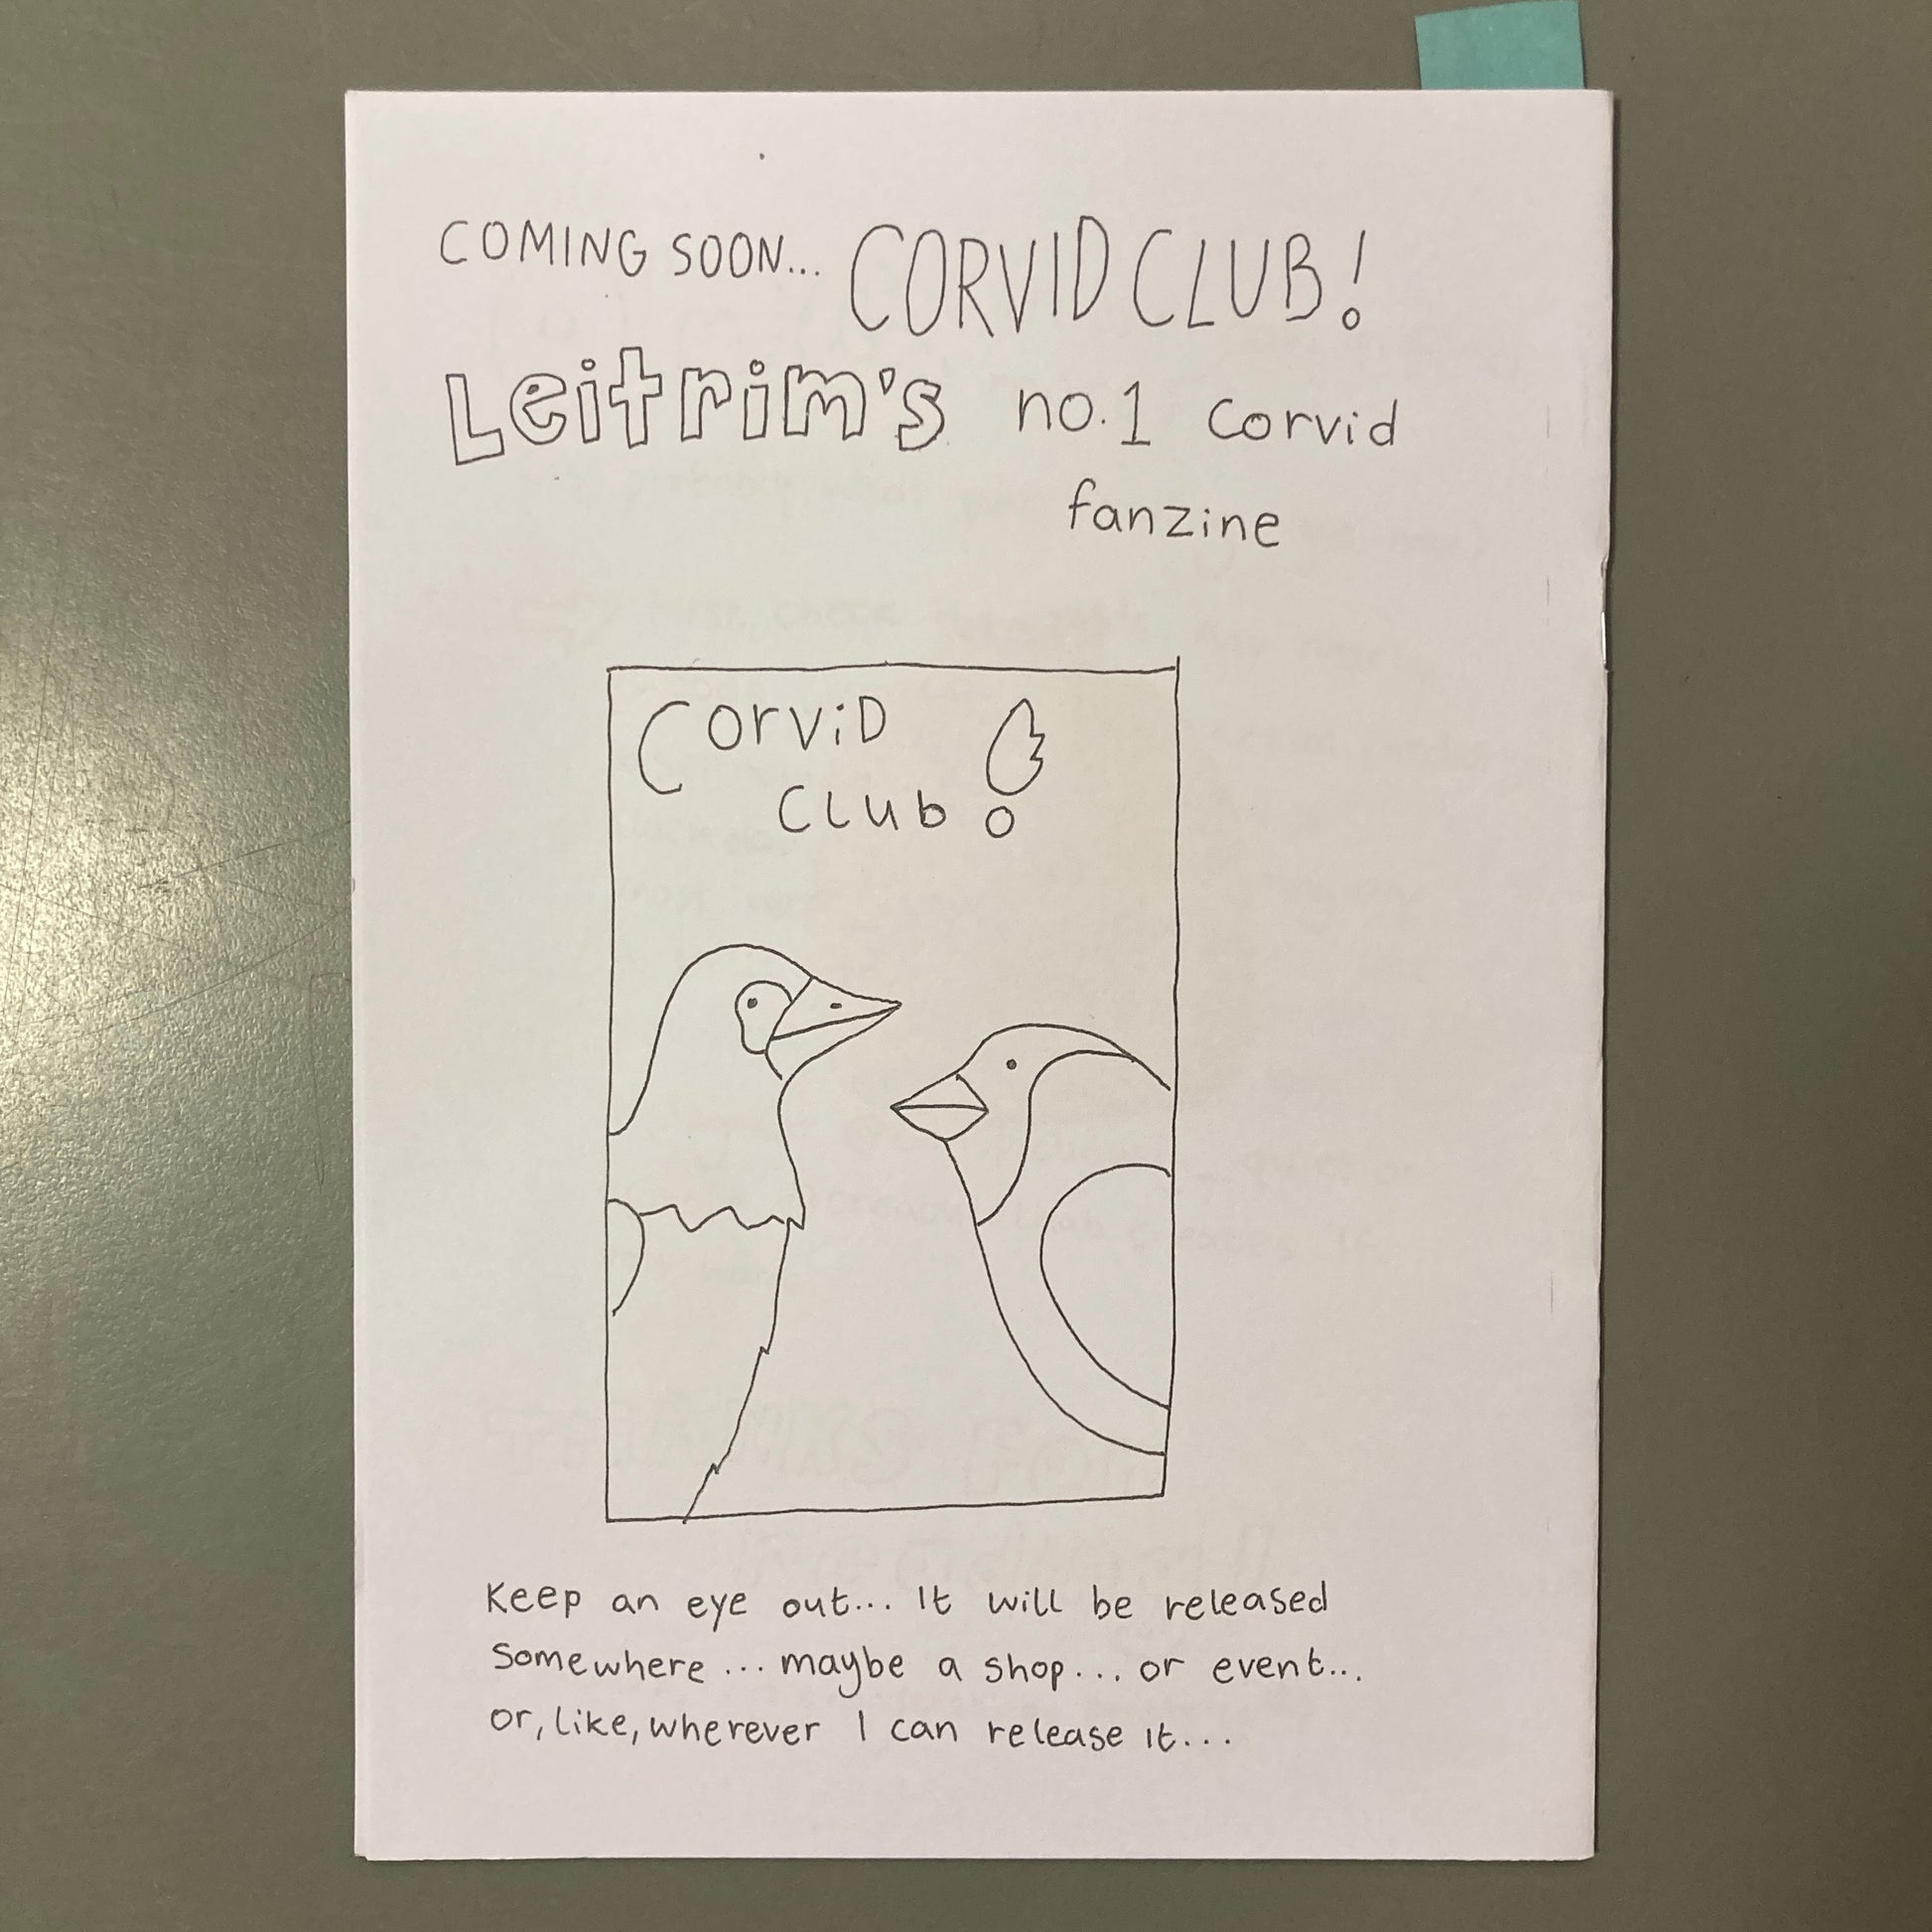 COMING SOON... CORVID CLUB!
Leitrim's no.1 corvid
fanzine
CorviD
Club!
Keep an eye out... It will be released
Somewhere... maybe a shop... or event...
or, like, wherever I can release it...